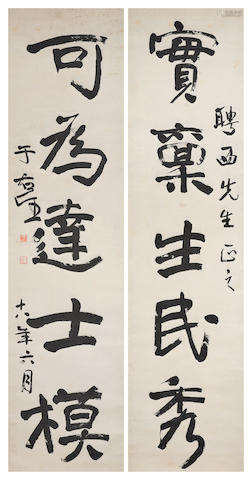 實稟生民秀
聘西先生正之
可為達士模
十八年六月
于右任